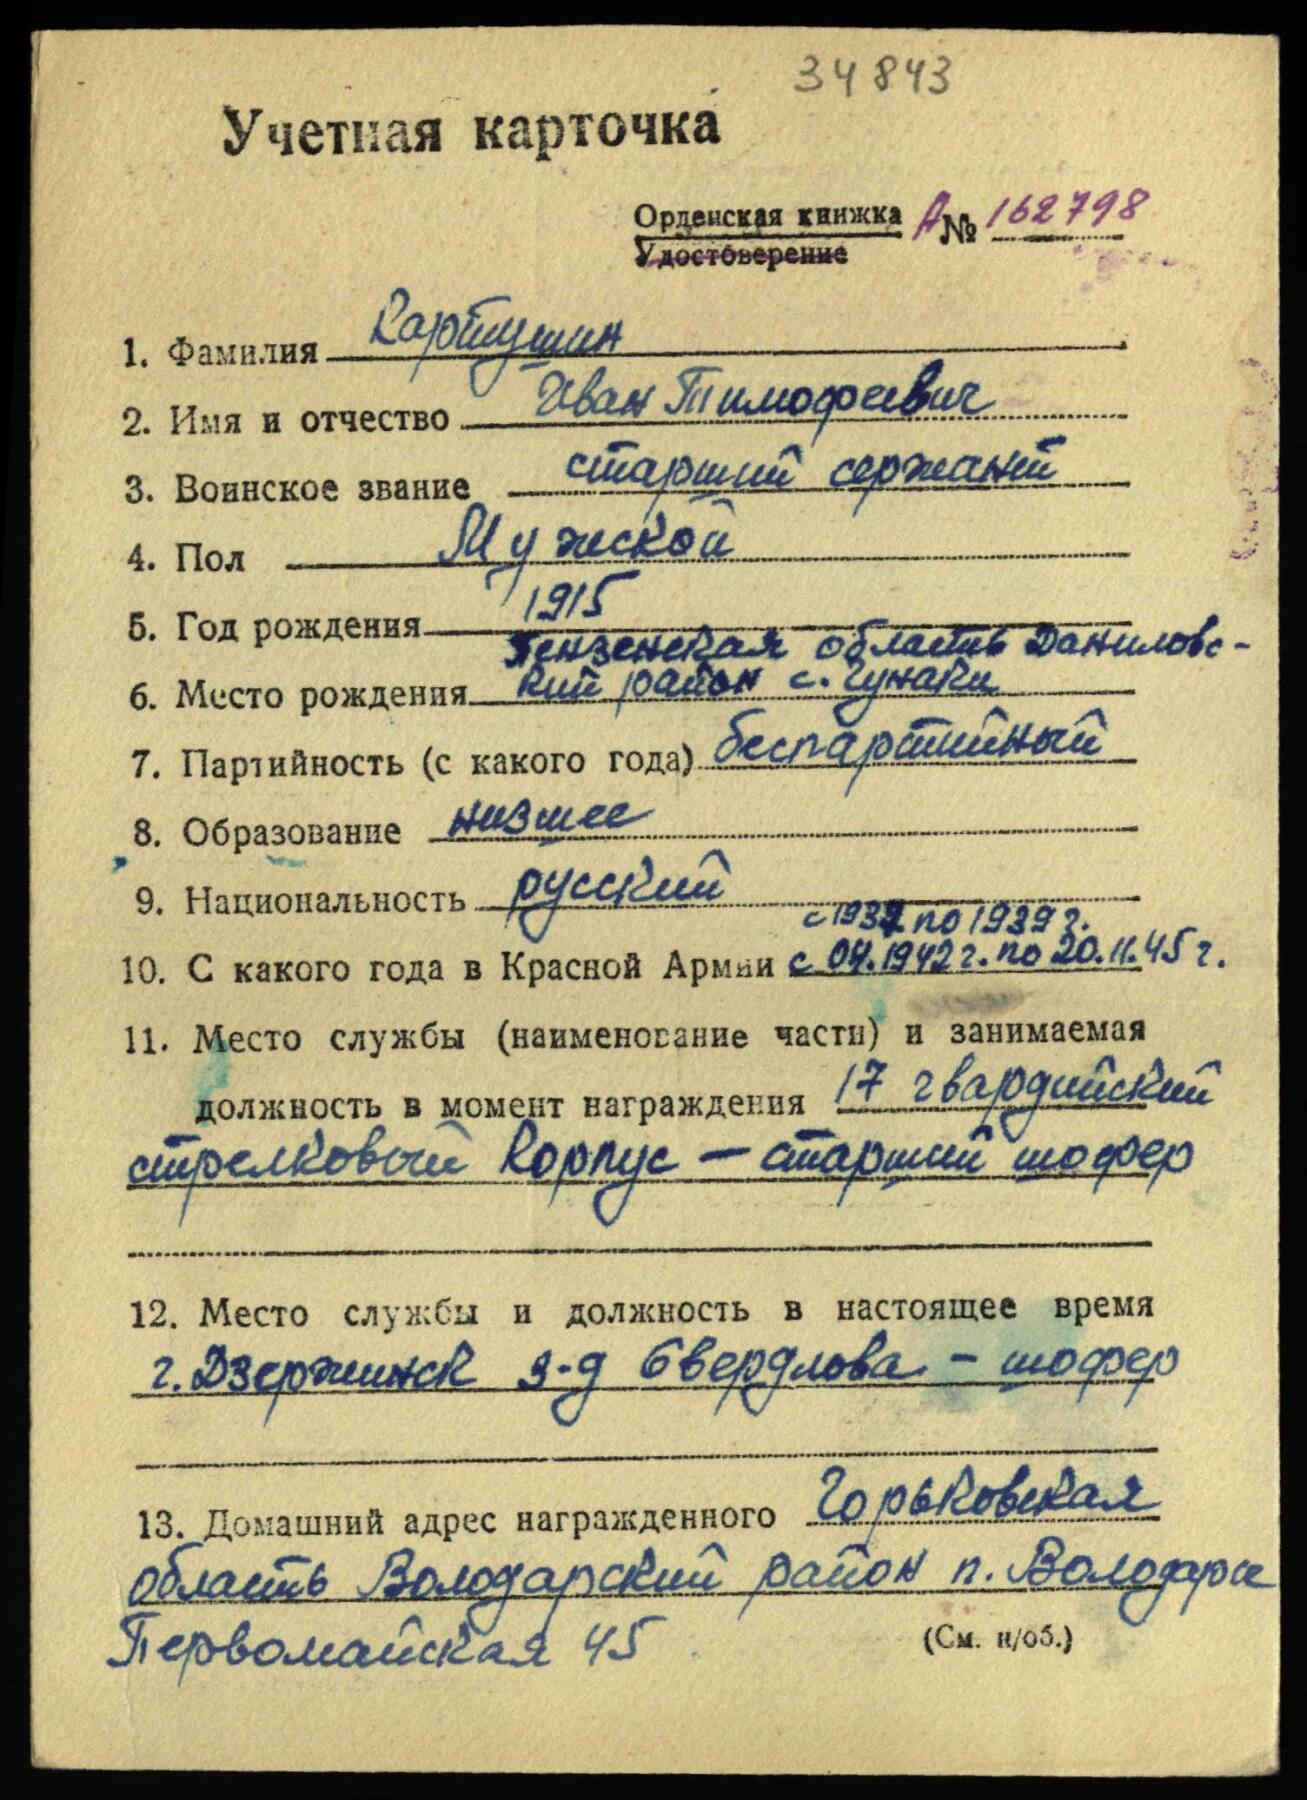 34843
Учетная карточка
Орденская книжка А № 162798
Удостоверение
1. Фамилия Картушин
2. Имя и отчество Иван Тимофеевич
3. Воинское звание старший сержант
4. Пол Мужской
5. Год рождения 1915
Пензенская область Даниловс-
6. Место рождения кий район с. Чунаки
7. Партийность (с какого года) беспартийный
8. Образование низшее
9. Национальность русский
с 1937 по 1939 г.
10. С какого года в Красной Армии с 04.1942 г. по 20.11.45 г.
11. Место службы (наименование части) и занимаемая
должность в момент награждения 17 гвардийский
стрелковый корпус — старший шофер
12. Место службы и должность в настоящее время
г. Дзержинск з-д Свердлова – шофер
13. Домашний адрес награжденного Горьковская
область Володарский район п. Володарск
Первомайская 45
(См. н/об.)